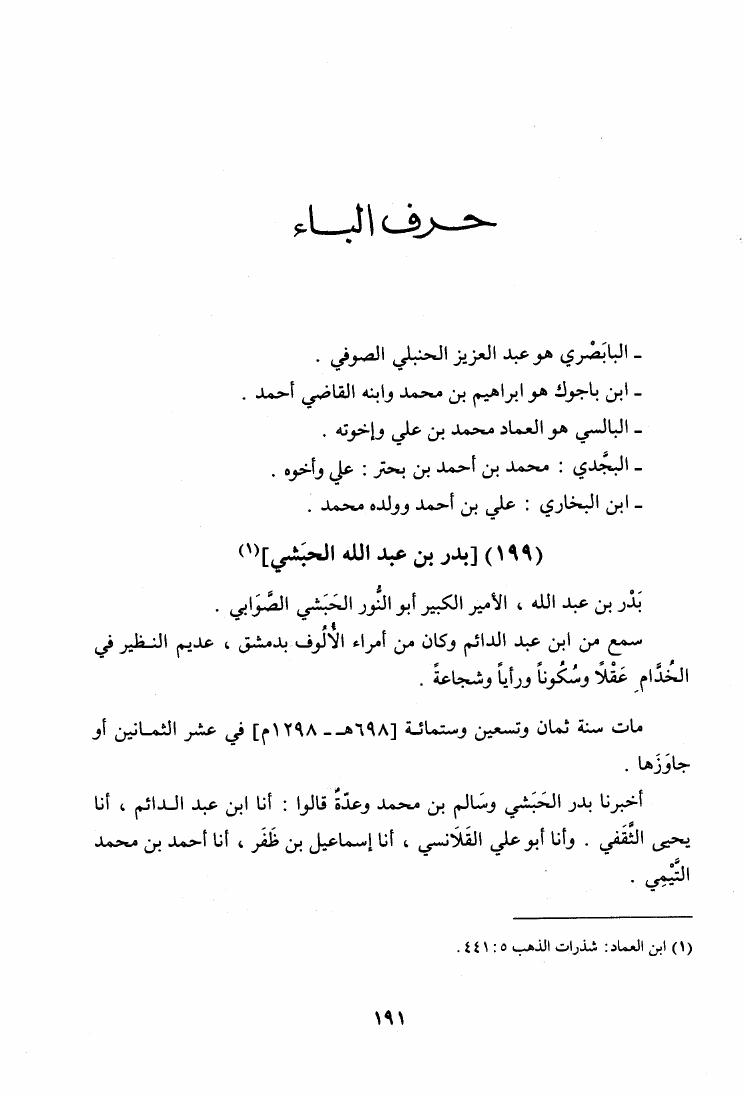 حرف الباء
ـ البابَصْري هو عبد العزيز الحنبلي الصوفي .
ـ ابن باجوك هو ابراهيم بن محمد وابنه القاضي أحمد .
ـ البالسي هو العماد محمد بن علي وإخوته .
ـ البجَّدي : محمد بن أحمد بن بحتر : علي وأخوه .
ـ ابن البخاري : علي بن أحمد وولده محمد .
(١٩٩) [بدر بن عبد الله الحبَشي](١)
بَدْر بن عبد الله ، الأمير الكبير أبو النُّور الحَبَشي الصَّوَابي .
سمع من ابن عبد الدائم وكان من أمراء الأُلُوف بدمشق ، عديم النظير في
الخُدَّامِ عَقْلاً وسُكُوناً ورأياً وشجاعةً .
مات سنة ثمان وتسعين وستمائة [٦٩٨هـ ـ ١٢٩٨م] في عشر الثمانين أو
جاوَزَها .
أخبرنا بدر الحَبَشي وسَالم بن محمد وعدّةٌ قالوا : أنا ابن عبد الدائم ، أنا
يحيى الثَّقَفي . وأنا أبو علي القَلَانسي ، أنا إسماعيل بن ظَفَر ، أنا أحمد بن محمد
التَّيْمِي .
(١) ابن العماد: شذرات الذهب ٥: ٤٤١ .
١٩١